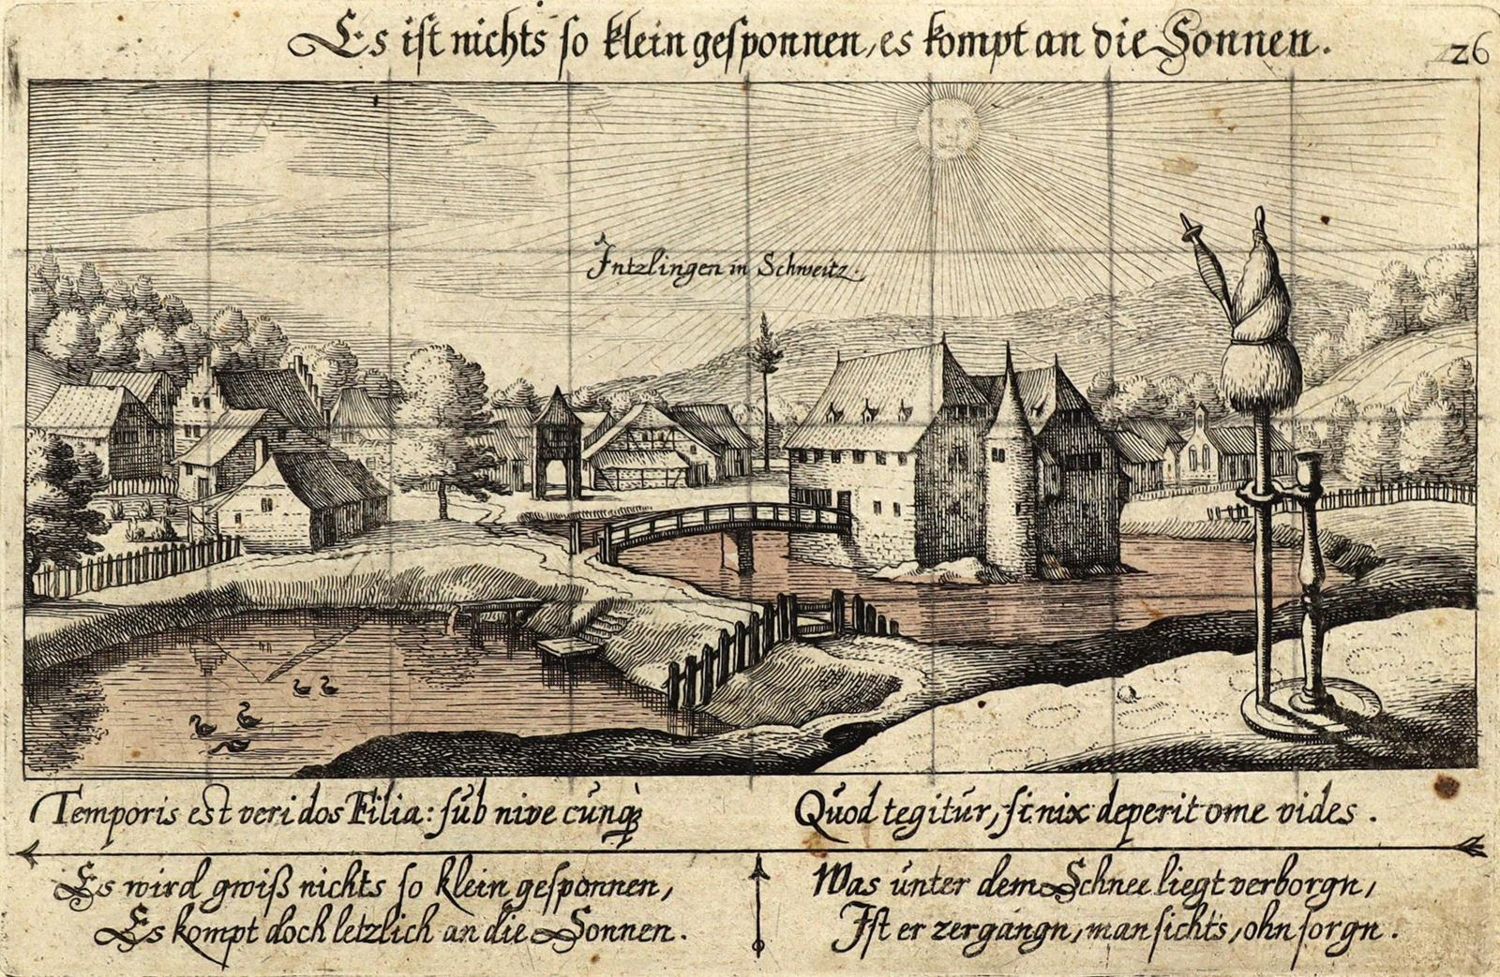 Es ist nichts so klein gesponnen, es kompt an die Sonnen.
26
Intzlingen in Schweitz.
Temporis est veri dos Filia: sub nive cunq;
Quod tegitur, si nix deperit ome vides.
Es wird gwiß nichts so klein gesponnen,
Es kompt doch letzlich an die Sonnen.
Was unter dem Schnee liegt verborgn,
Ist er zergangn, man sichts, ohn sorgn.